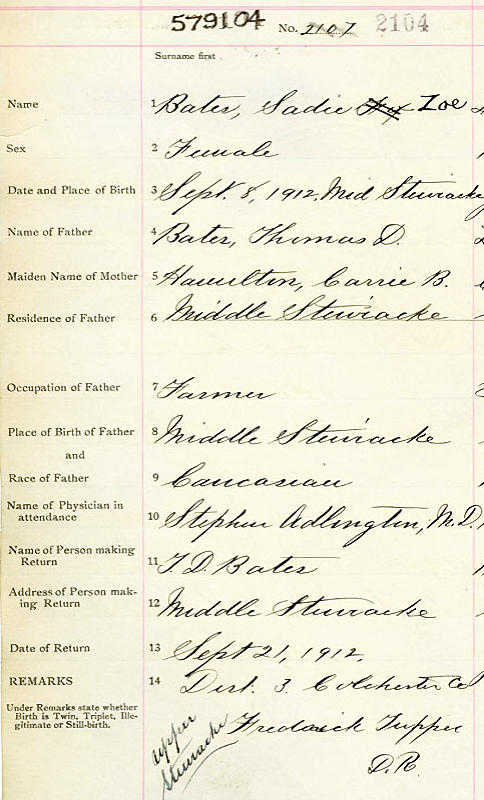 579104 No. 2107 2104
Surname first
Name 1 Bates, Sadie Zoe
Sex 2 Female
Date and Place of Birth 3 Sept. 8, 1912, Mid Stewiacke
Name of Father 4 Bates, Thomas D.
Maiden Name of Mother 5 Hamilton, Carrie B.
Residence of Father 6 Middle Stewiacke
Occupation of Father 7 Farmer
Place of Birth of Father 8 Middle Stewiacke
and
Race of Father 9 Caucasian
Name of Physician in
attendance 10 Stephen Adlington, M.D.
Name of Person making
Return 11 T D. Bates
Address of Person mak-
ing Return 12 Middle Stewiacke
Date of Return 13 Sept 21, 1912.
REMARKS 14 Dist. 3. Colchester Co
Under Remarks state whether
Birth is Twin, Triplet, Ille-
gitimate or Still-birth.
Upper
Stewiacke
Frederick Tupper
D.R.